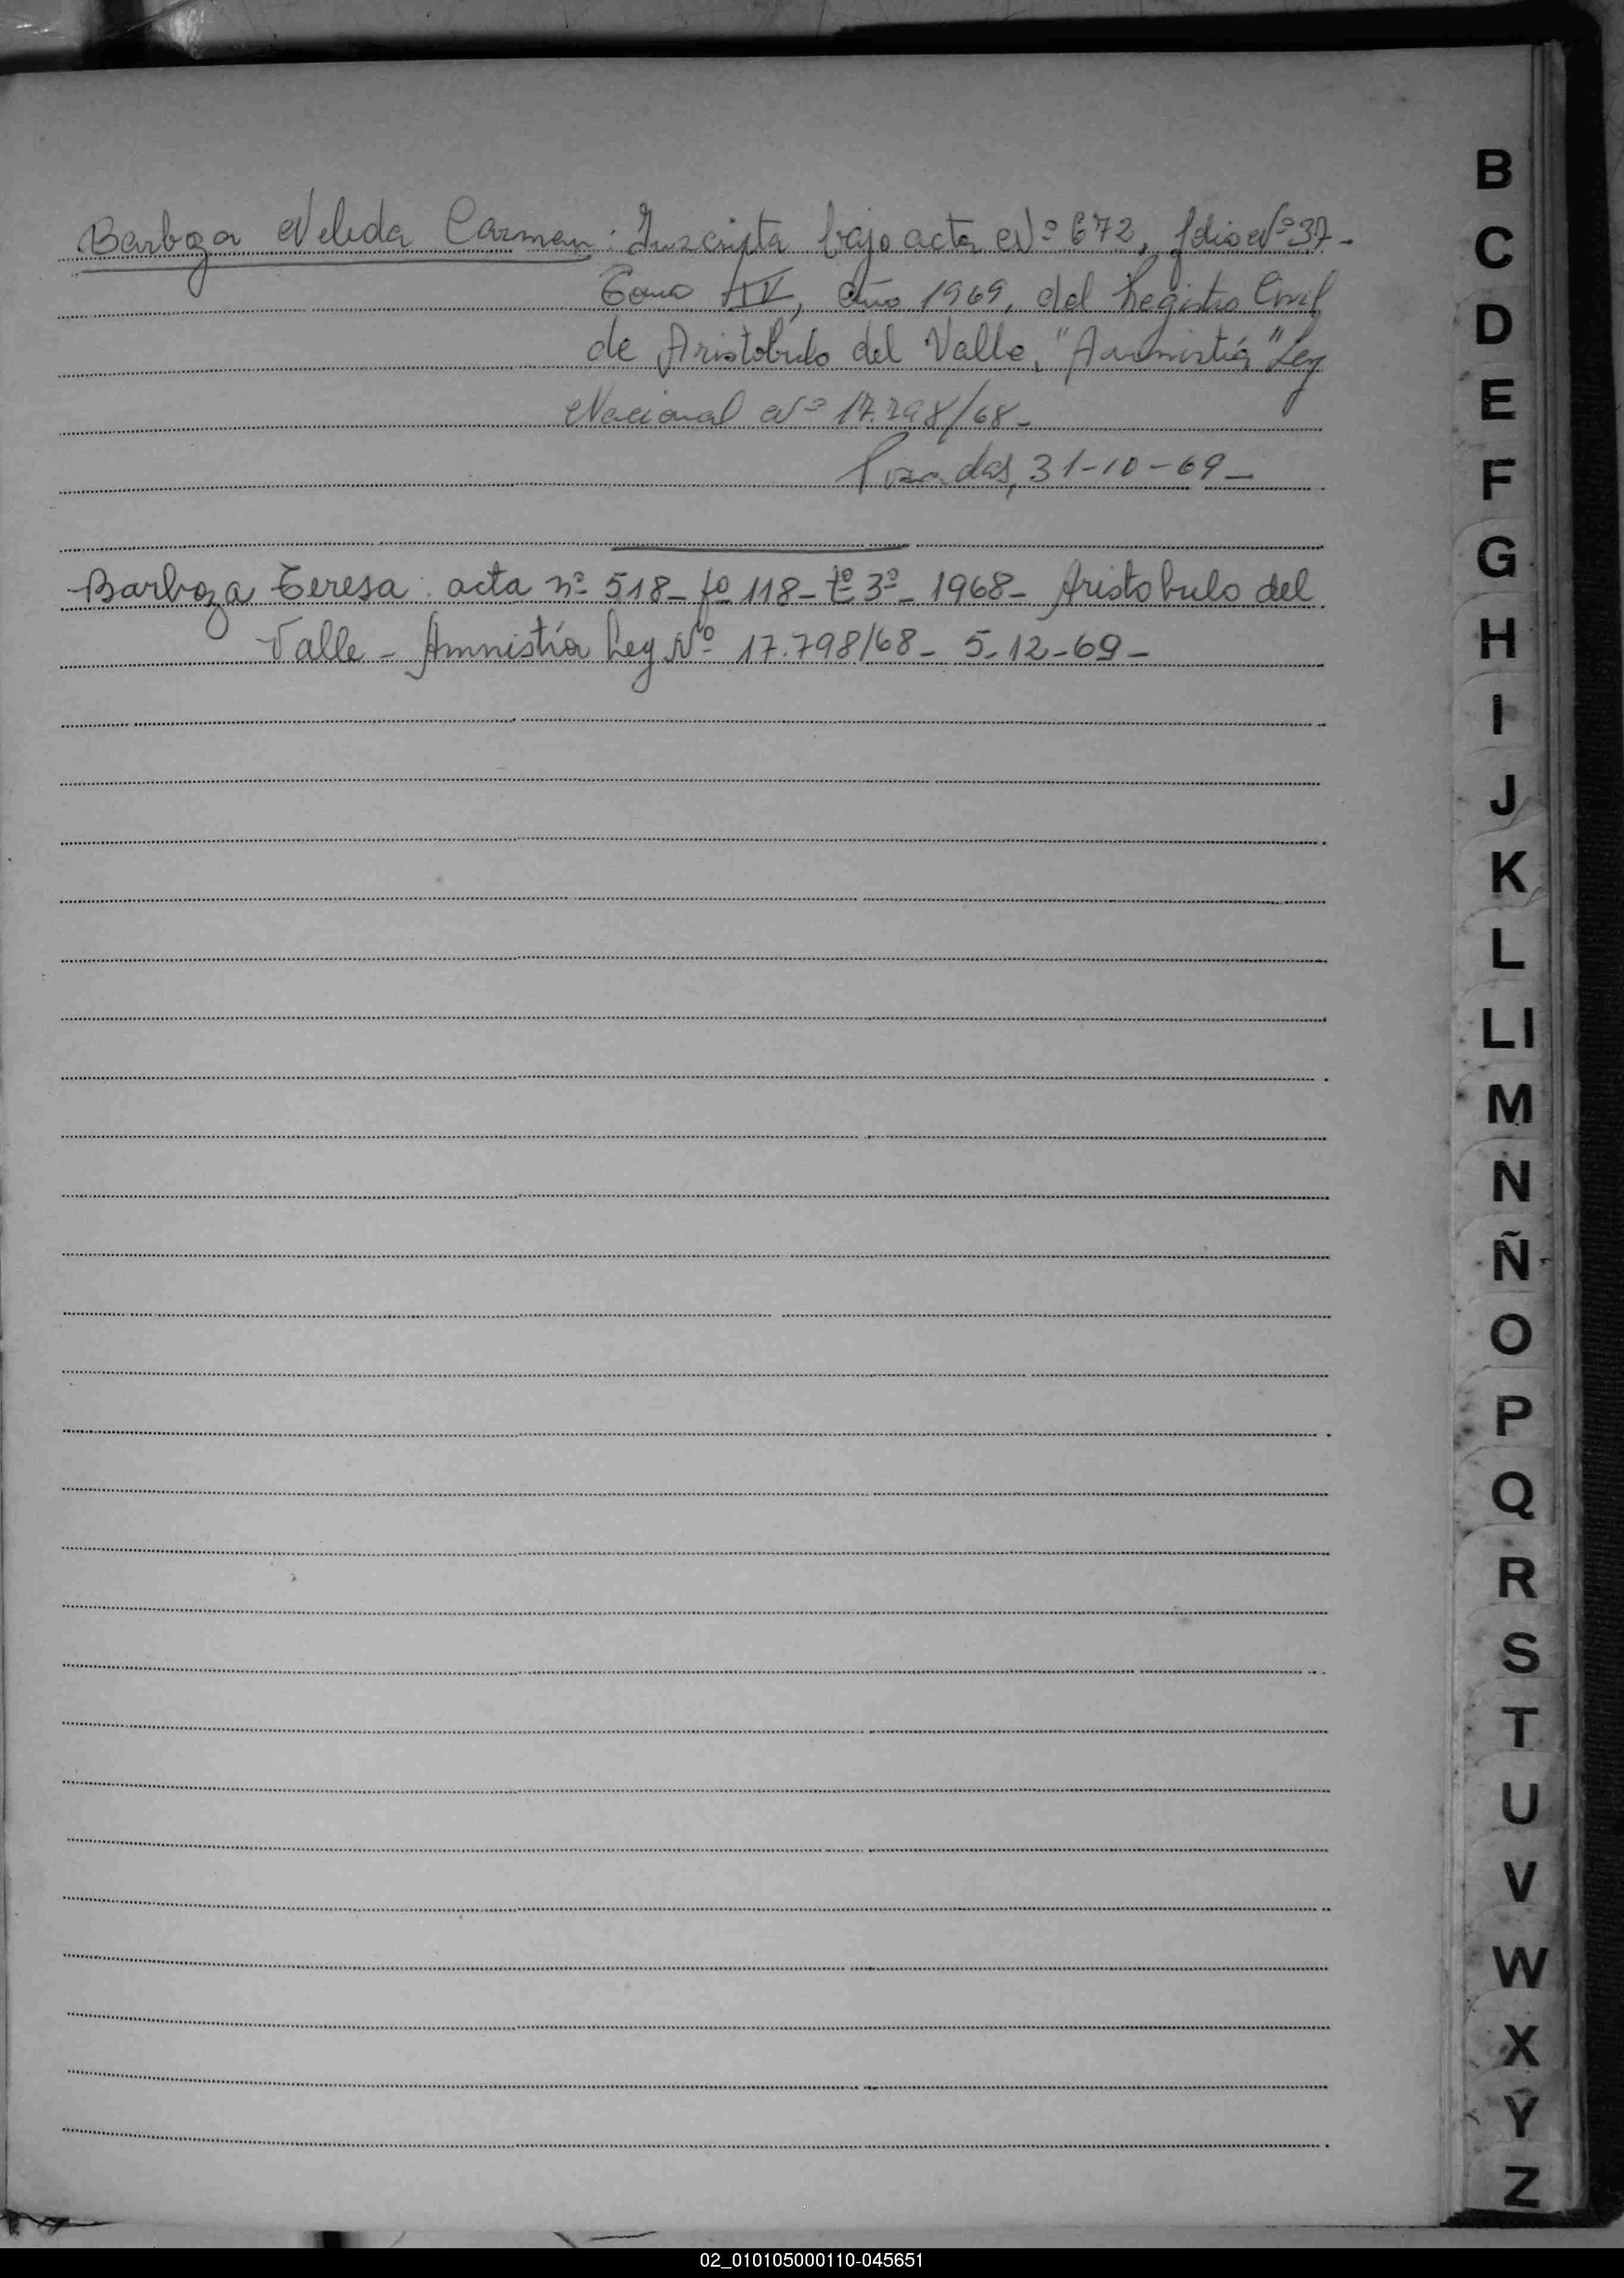 Barboza Nelida Carmen: Inscripta bajo acta Nº 672, folio Nº 37-
Tomo IV, año 1969, del Registro Civil
de Aristobulo del Valle, "Amnistía" Ley
Nacional Nº 17.798/68-
Posadas, 31-10-69-
Barboza Teresa: acta nº 518- fº 118- tº 3º- 1968- Aristobulo del
Valle- Amnistía Ley Nº 17.798/68- 5-12-69-
B
C
D
E
F
G
H
I
J
K
L
Ll
M
N
Ñ
O
P
Q
R
S
T
U
V
W
X
Y
Z
02_010105000110-045651